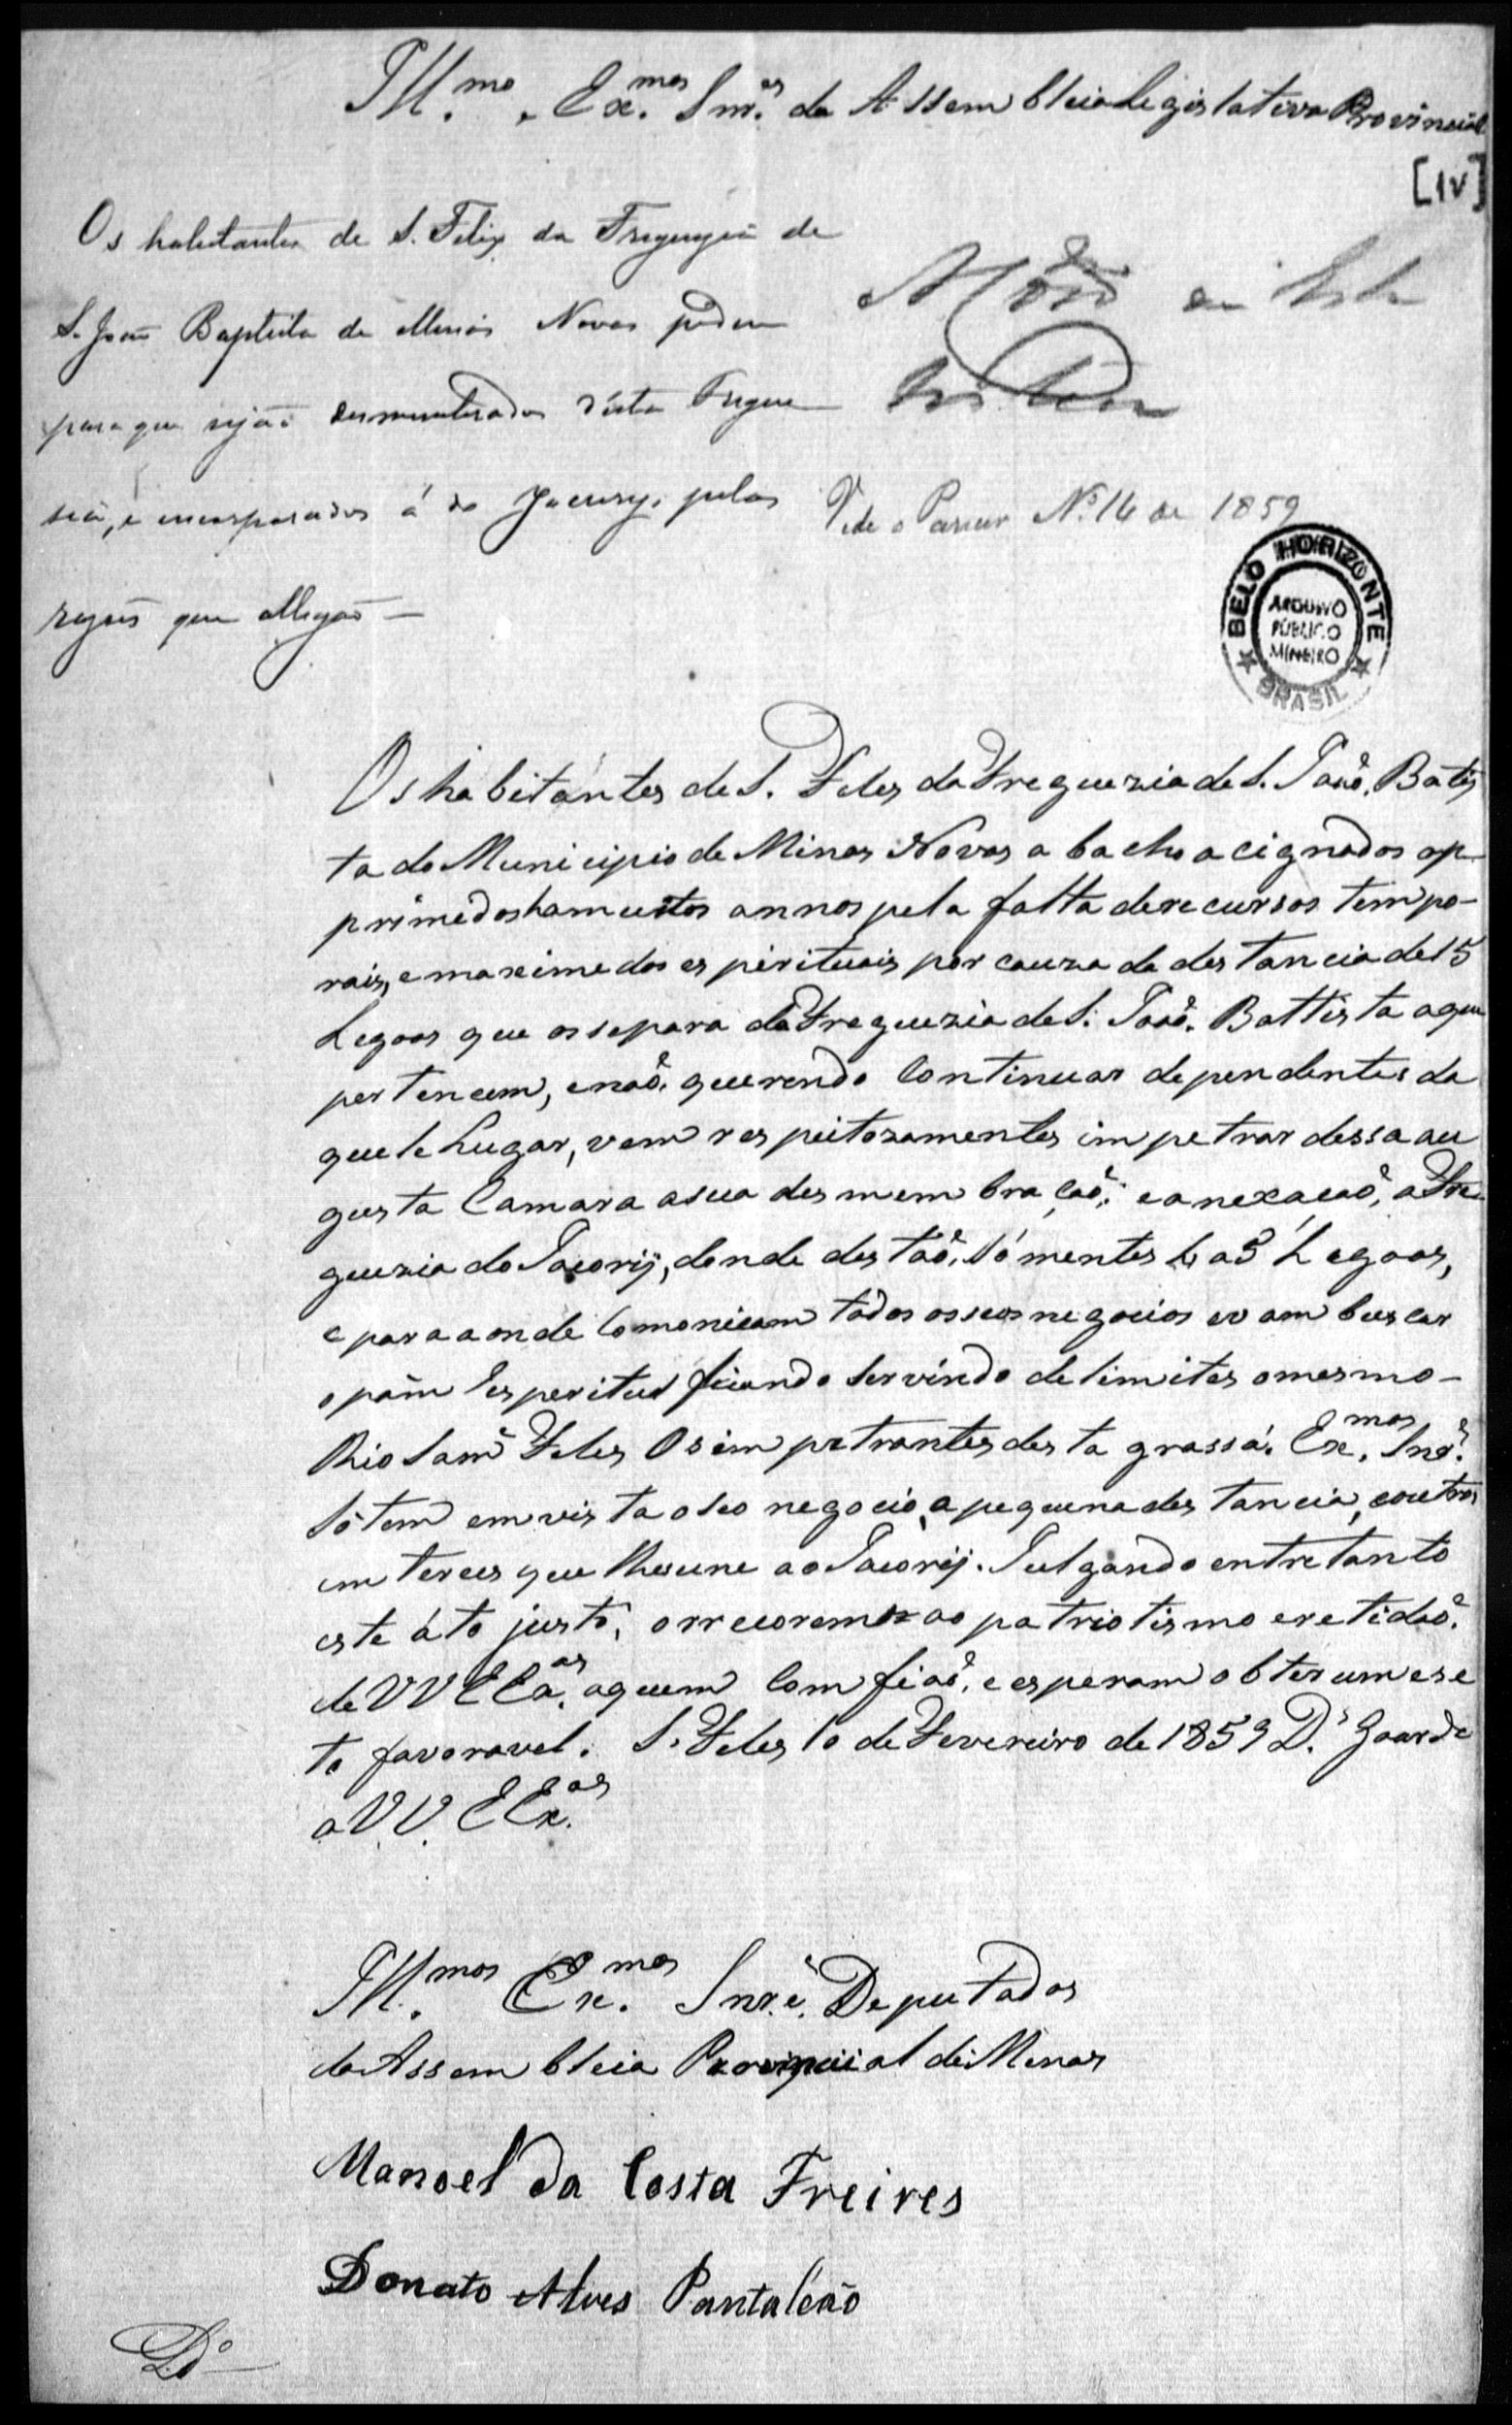 Ill.mo e Ex.mos Snr.es da Assembleia Legislativa Provincial
[IV]
Os habitantes de S. Felix da Freguezia de
S. João Baptista de Minas Novas pedem
para que sejão desmembrados d'esta Fregue
sia, e incorporados á do Jacury, pelas
rasões que allegão —
Vide o Parecer Nº 14 de 1859
BELO HORIZONTE
ARQUIVO
PÚBLICO
MINEIRO
BRASIL
Os habitantes de S. Feles da Freguezia de S. Joaõ Batis
ta do Municipio de Minas Novas abacho acignados op-
primedos ha muitos annos pela falta de recursos tempo-
rais, e maxime dos espirituais por cauza da destancia de 15
Legoas que os separa da Freguezia de S. Joaõ Battista a que
pertencem, e naõ querendo continuar dependentes da
quele Lugar, vem respeitozamentes impetrar dessa au
gusta Camara a sua desmembraçaõ; e anexacaõ, a Fre
guezia do Jacorij, donde destaõ, sómentes 4 a 5 Legoas,
e para aonde comonicam tôdos os seus negocios e vam buscar
o pãm esperitual ficando servindo de limites o mesmo-
Rio Sam Feles Os impetrantes desta grassá, Ex.mos Snr.es
só tem em vista o seo negocio, a pequena destancia, e outros
interces que lhes une ao Jacorij. Julgando entretanto
este áto justo, orrecorem ao patriotismo e retidaõ
de VV EEx.as a quem comfiaõ, e esperam obter um ese
to favoravel. S. Feles 10 de Fevereiro de 1859 D.s Goarde
a VV. EEx.as
Ill.mos Ex.mos Snr.es Deputados
da Assembleia Provincial de Menas
Manoel da Costa Freires
Donato Alves Pantaleão